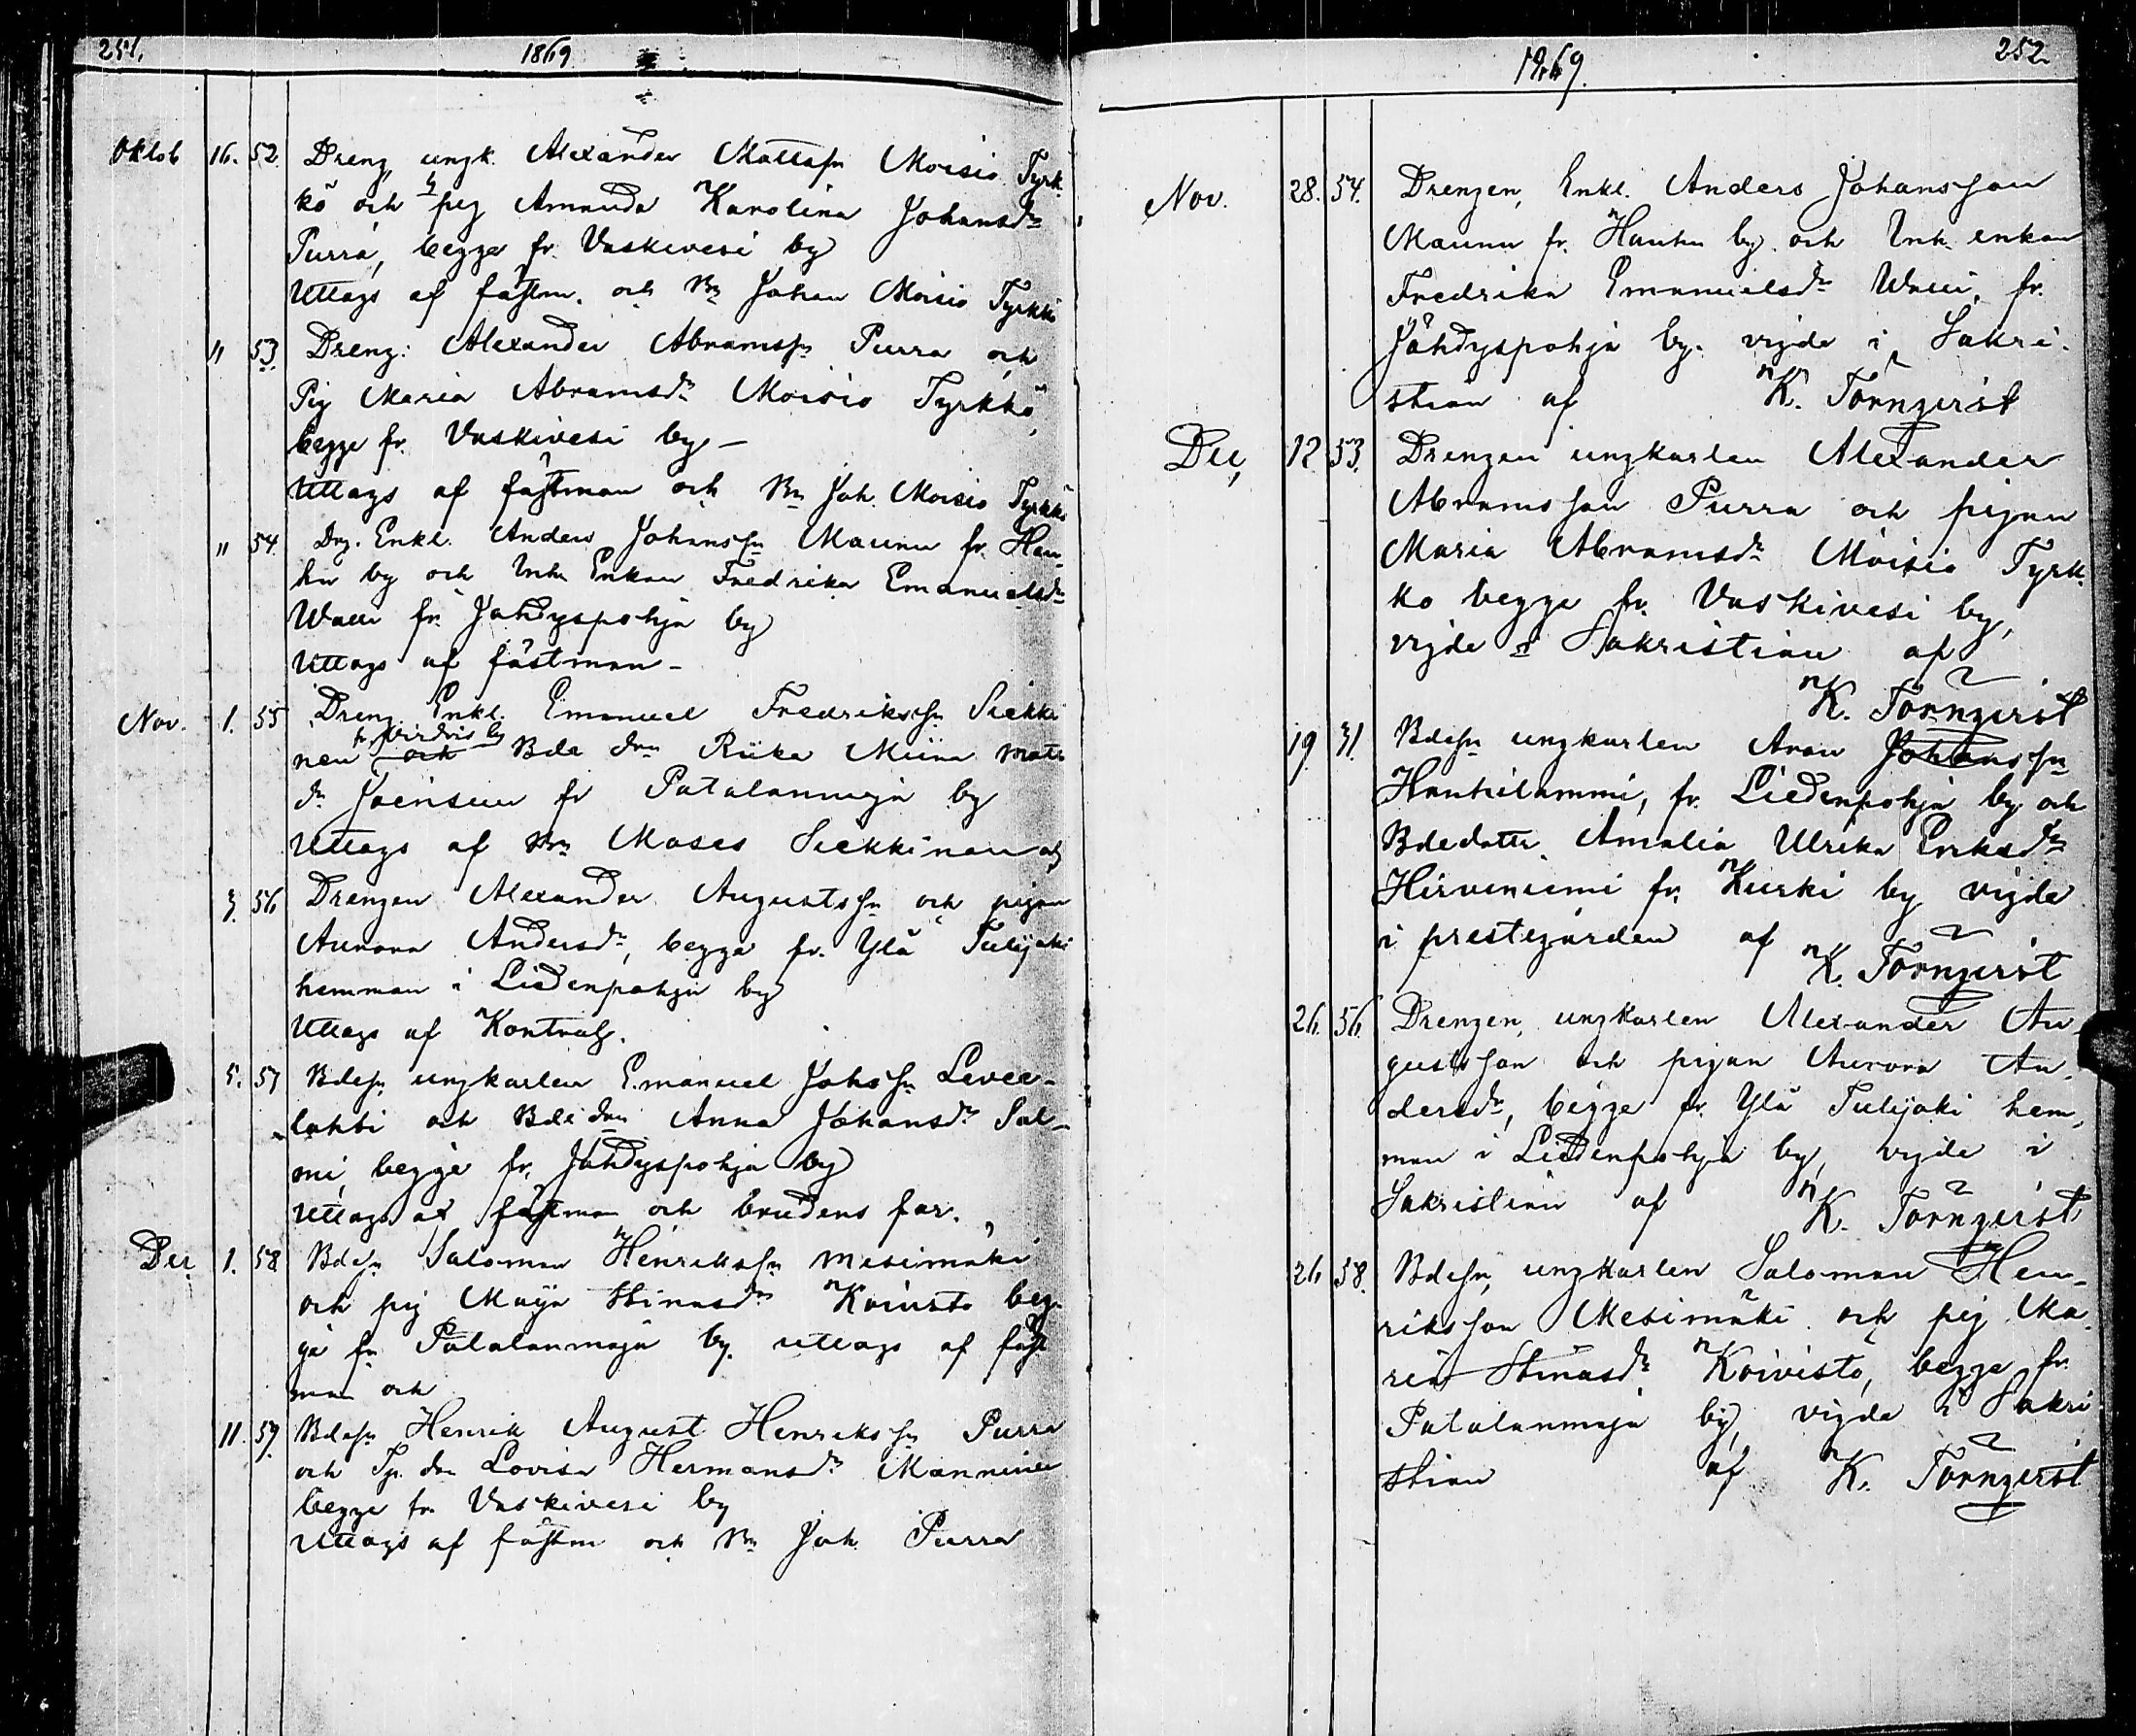 251.
1869
Oktob 16. 52. Dreng, ungk. Alexander Mattssn Moisio Tyrk
kö och pig Amanda Karolina Johansdr
Purra, begge fr. Vaskivesi by
Uttogs af fästm. och Bn Johan Moisio Tyrkkö
" 53. Dreng: Alexander Abramssn Purra och
Pig Maria Abramsdr Moisio Tyrkkö,
begge fr. Vaskivesi by –
Uttogs af fästman och Bn Joh. Moisio Tyrkkö
" 54. Drg. Enkl. Anders Johanssn Maunu fr. Hau-
hu by och Inh. Enkan Fredrika Emanuelsdr
fr. Jähdyspohja by
Uttogs af fästman –
Nov. 1. 55 Dreng Enkl. Emanuel Fredrikssn Siekki
nen fr. Virdois by och Bde dn Riika Miina Matts
dr Joensuu fr Patalanmaja by
Uttogs af Bn Moses Siekkinen
3. 56 Drengen Alexander Augustssn och pigan
Aurora Andersdr, begge fr. Ylä Tulijoki
hemman i Liedenpohja by
Uttogs af Kontrah.
5. 57 Bdessn ungkarlen Emanuel Johssn Levee-
lahti och Bde dn Anna Johansdr Sal-
mi, begge fr. Jähdyspohja by
Uttogs af fästman och brudens far.
Dec 1. 58 Bdesn Salomon Henrikssn Mesimäki
och pig Maija Stinasdr Koivisto beg-
ge fn Patalanmaja by. uttogs af fäst
man och
11. 59. Bdessn Henrik August Henrikssn Purra
och Tp. dn Lovisa Hermansdr Manninen
begge fr Vaskivesi by
Uttogs af fästm och Bn Joh. Purra
1869.
252.
Nov. 28. 54. Drengen, Enkl. Anders Johansson
Maunu fr. Hauhu by och Inh. enkan
Fredrika Emanuelsdr fr.
Jähdyspohja by. vigde i Sakri-
stian af K. Törnqvist
Dec, 12 53. Drengen ungkarlen Alexander
Abramsson Purra och pigan
Maria Abramsdr Moisio Tyrk-
kö begge fr. Vaskivesi by,
vigde i Sakristian af
K. Törnqvist
19. 31. Bdessn ungkarlen Aron Johanssn
Hanhilammi, fr. Liedenpohja by och
Bdedottr. Amalia Ulrika Eriksdr
Hirviniemi fr. Kurki by vigde
i prestegården af K. Törnqvist
26. 56. Drengen, ungkarlen Alexander Au-
gustsson och pigan Aurora An-
dersdr, begge fr. Ylä Tulijoki hem-
man i Liedenpohja by, vigde i
Sakristian af K. Törnqvist
26 58. Bdessn, ungkarlen Salomon Hen-
riksson Mesimäki och pig Ma-
ria Stinasdr Koivisto, begge fr.
Patalanmaja by, vigde i Sakri
stian af K. Törnqvist